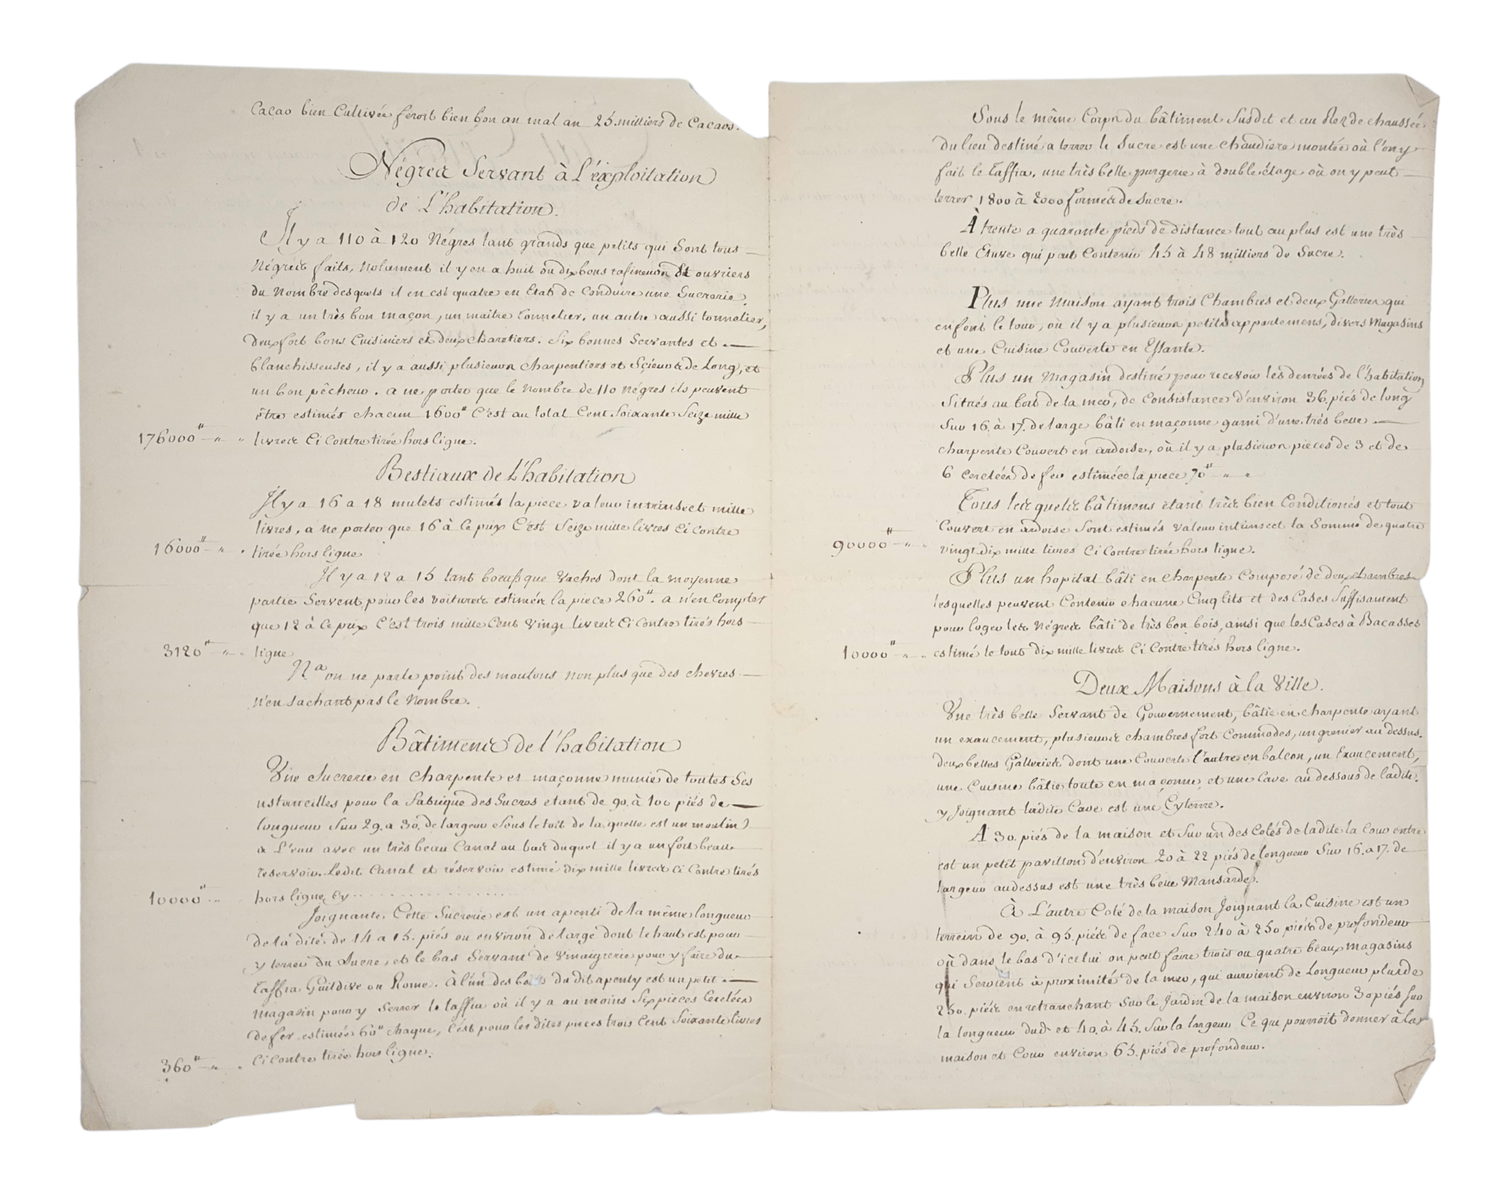 Cacao bien Cultivée feroit bien bon an mal an 25. milliers de Cacaos.
Négres Servant à L'éxploitation
de L'habitation.
Il y a 110 à 120 Négres tant grands que petits qui Sont tous
Négres faits, Notament il y en a huit ou dix bons rafineurs et ouvriers
du Nombre desquels il en est quatre en Etat de Conduire une Sucrerie.
il y a un très bon maçon, un maitre Tonnelier, un autre aussi tonnelier,
deux fort bons Cuisiniers et deux charetiers. Six bonnes Servantes et
blanchisseuses, il y a aussi plusieurs charpentiers et Scieurs de Long, et
un bon pêcheur. a ne porter que le Nombre de 110 négres ils peuvent
être estimés chacun 1600# C'est au total Cent Soixante Seize mille
176000# livres Ci Contre tirée hors ligne.
Bestiaux de L'habitation
Il y a 16 a 18 mulets estimés la piece valeur intrinsect mille
livres, a ne porter que 16 à Ce prix C'est Seize mille livres Ci Contre
16000# tirée hors ligne
Il y a 12 a 15 tant boeufs que vaches dont la moyenne
partie Servent pour les voitures estimés la piece 260#. a n'en Compter
que 12 à Ce prix C'est trois mille Cent vingt livres Ci Contre tirés hors
3120# ligne
Na on ne parle point des moutons non plus que des chevres
n'en Sachant pas le Nombre.
Bâtiments de l'habitation
Une Sucrerie en charpente et maçonne munie de toutes Ses
ustancilles pour la fabrique des Sucres etant de 90. à 100 piés de
longueur Sur 29. a 30. de largeur Sous le toit de la quelle est un moulin
a L'eau avec un très beau Canal au bas duquel il y a un fort beau
reservoir. Ledit Canal et réservoir estimé dix mille livres Ci Contre tirés
10000# hors ligne Cy
Joignante Cette Sucrerie est un apenti de la même longueur
de la dite. de 14 a 15. piés ou environ de large dont le haut est pour
y terrer du Sucre, et le bas Servant de vinaigrerie pour y faire du
Taffia Guildive ou Rome. À l'un des bouts du dit apenty est un petit
magasin pour y Serrer le taffia où il y a au moins Six pieces Cerclées
de fer estimée 60# chaque, C'est pour les dites pieces trois Cent Soixante livres
360# Ci Contre tirée hors ligne.
Sous le même Corps du bâtiment Susdit et au Rez de chaussée
du lieu destiné a terrer le Sucre est une chaudiere montée où l'on y
fait le Taffia, une très belle purgerie à double étage où on y peut
terrer 1800 à 2000 formes de Sucre.
À trente a quarante pieds de distance tout au plus est une très
belle Etuve qui peut Contenir 45 à 48 milliers de Sucre.
Plus une Maison ayant trois Chambres et deux Galleries qui
en font le tour, où il y a plusieurs petits appartemens, divers Magasins
et une Cuisine Couverte en Essante.
Plus un Magasin destiné pour recevoir les denrées de l'habitation
Sitrés au bord de la mer, de Consistance d'environ 36. piés de long
Sur 16. à 17. de large bâti en maçonne garni d'une très belle
charpente Couvert en ardoise, où il y a plusieurs pieces de 3 et de
6 cerclées de fer estimées la piece 70#
Tous lesquels bâtimens étant très bien Conditionés et tout
Couvert en ardoise Sont estimés valeur intrinsect la Somme de quatre
90000# vingt dix mille livres Ci Contre tirée hors ligne.
Plus un hopital bâti en charpente Composé de deux chambres
lesquelles peuvent Contenir chacune Cinq lits et des Cases Suffisament
pour loger les Négres bâti de très bon bois, ainsi que les Cases à Bacasses
10000# estimé le tout dix mille livres Ci Contre tirés hors ligne.
Deux Maisons à la Ville.
Une très belle Servant de Gouvernement, bâtie en charpente ayant
un exaucement, plusieurs chambres fort Commodes, un grenier au dessus.
deux belles Galleries dont une Couverte l'autre en balcon, un Exaucement,
une Cuisine bâtie toute en maçonne, et une Cave au dessous de ladite.
y Joignant ladite Cave est une Cyterne.
A 30. piés de la maison et Sur un des Cotés de ladite la Cour entre
est un petit pavillon d'environ 20 à 22 piés de longueur Sur 16. a 17. de
largeur au dessus est une très belle Mansarde.
À L'autre Coté de la maison Joignant la Cuisine est un
terrein de 90. à 95. piés de face Sur 240 à 250 piés de profondeur
où dans le bas d'icelui on peut faire trois ou quatre beaux magasins
qui Seroient à proximité de la mer, qui auroient de Longueur plus de
250. piés en retranchant Sur le Jardin de la maison environ 30 piés Sur
la longueur dud. et 40. à 45. Sur la largeur Ce qui pourroit donner à la
maison et Cour environ 65. piés de profondeur.